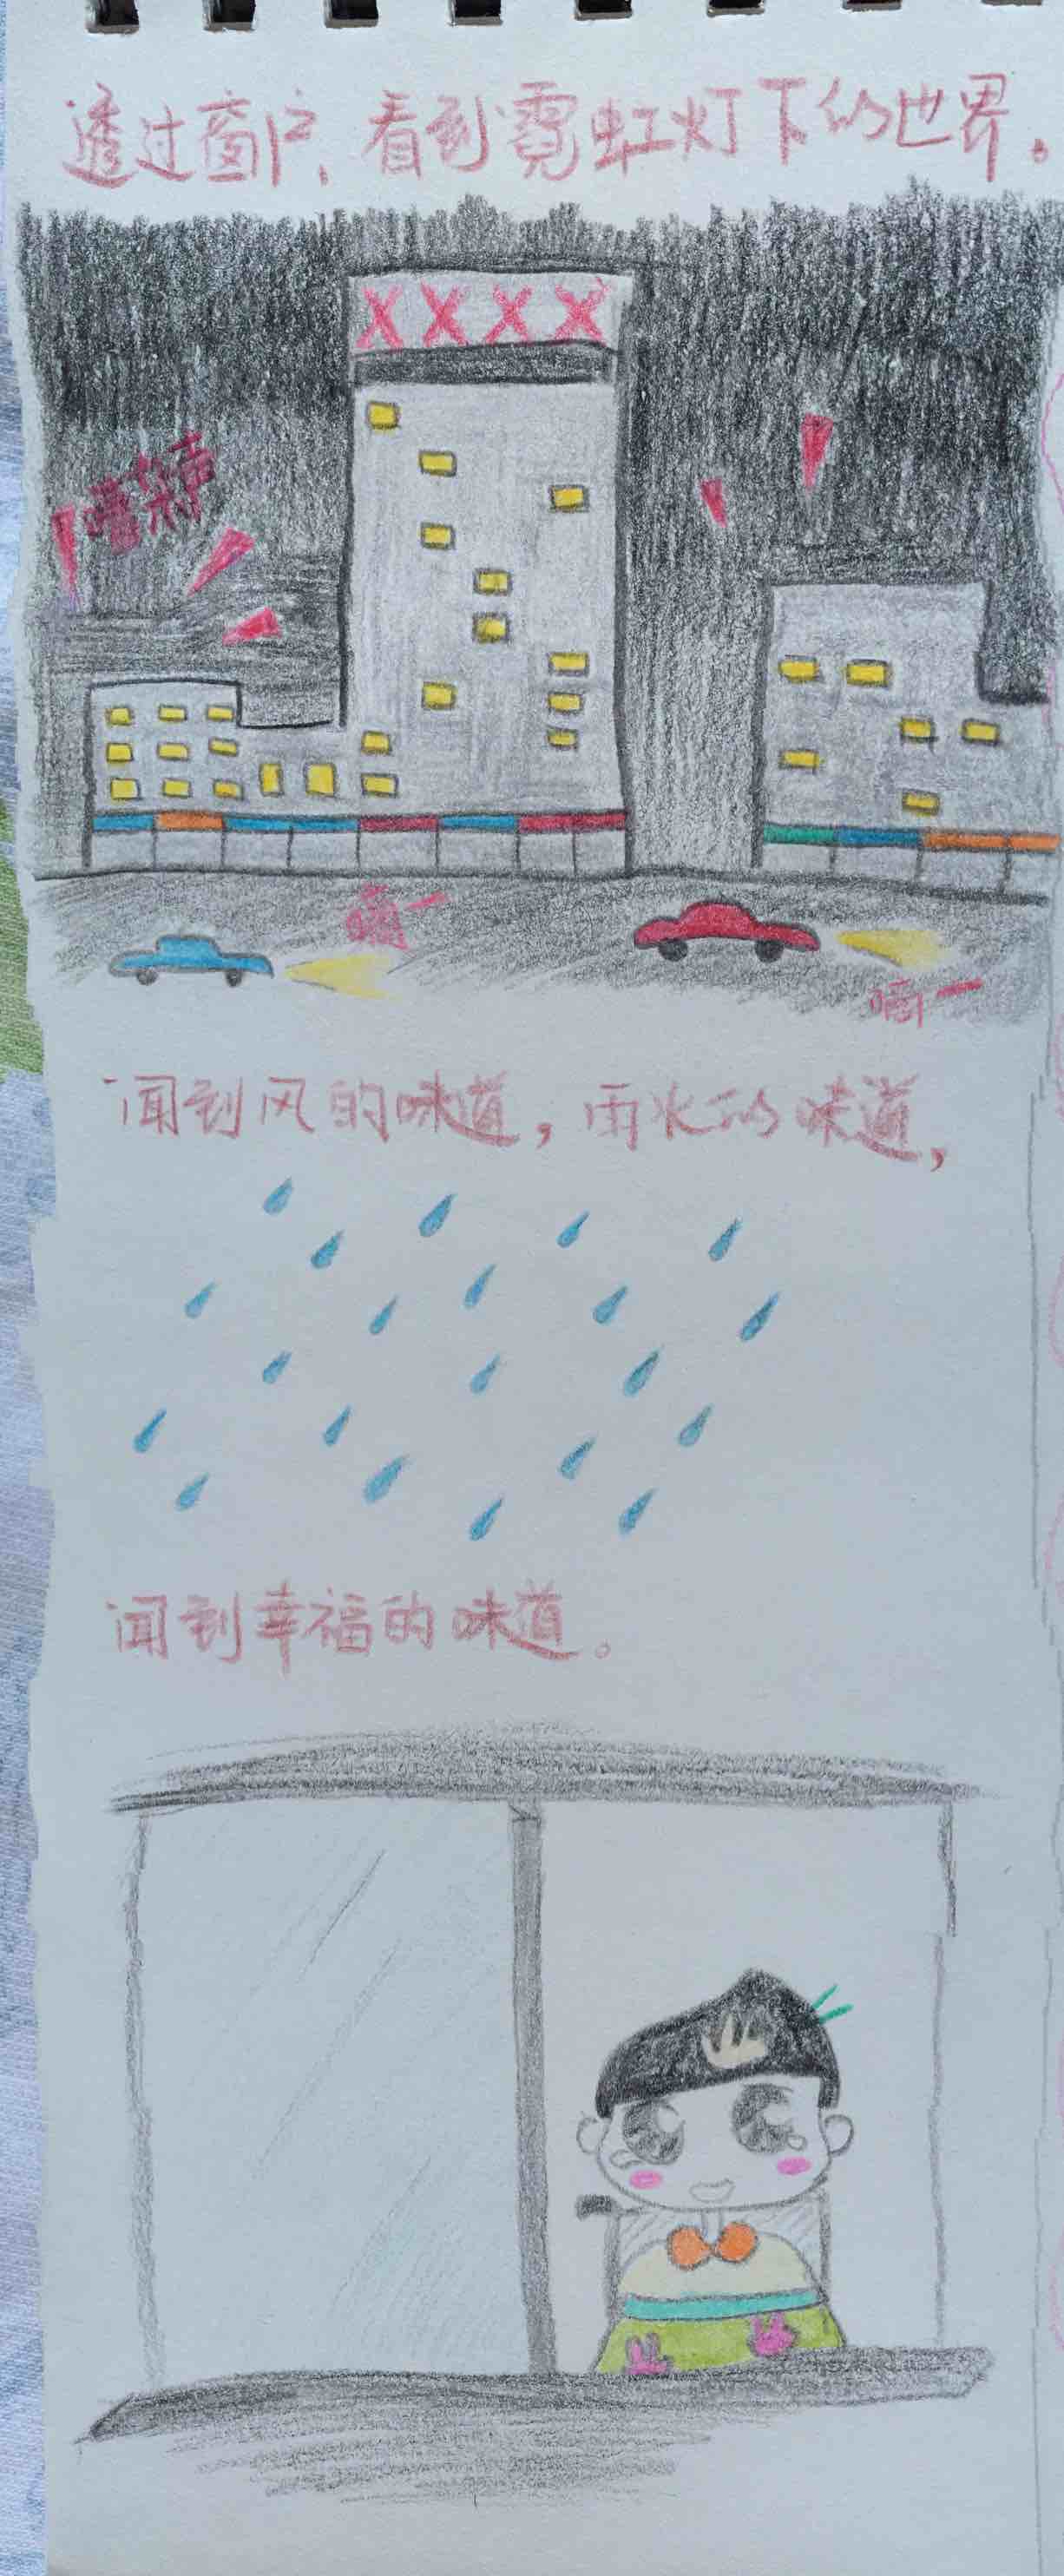 透过窗户、看到霓虹灯下的世界。
XXXX
嘈杂声
嘀一
嘀一
闻到风的味道，雨水的味道，
闻到幸福的味道。